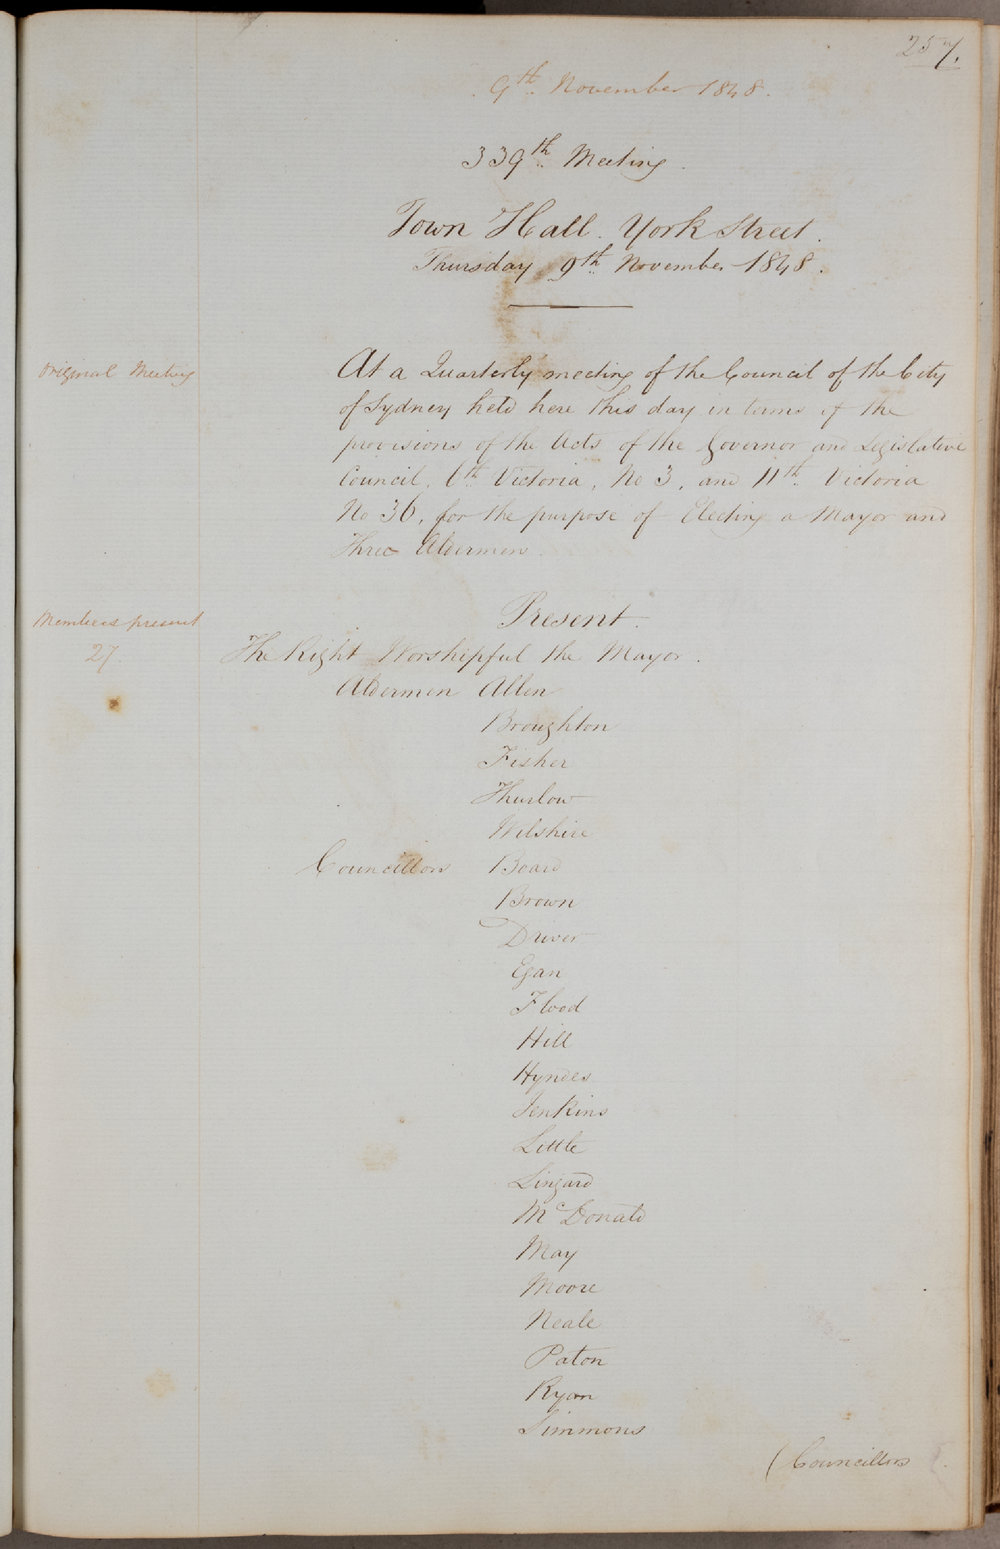 257.
9th. November 1848.
339th. Meeting.
Town Hall. York Street.
Thursday 9th. November 1848.
Original Meeting
At a Quarterly meeting of the Council of the City
of Sydney held here this day in terms of the
provisions of the Acts of the Governor and Legislative
Council, 6th. Victoria, No 3, and 11th. Victoria
No 36, for the purpose of Electing a Mayor and
Three Aldermen.
Members present
27.
Present.
The Right Worshipful the Mayor.
Aldermen Allen
Broughton
Fisher
Thurlow
Wilshire
Councillors Board
Brown
Driver
Egan
Flood
Hill
Hyndes
Jenkins
Little
Lingard
McDonald
May
Moore
Neale
Paton
Ryan
Simmons
(Councillors